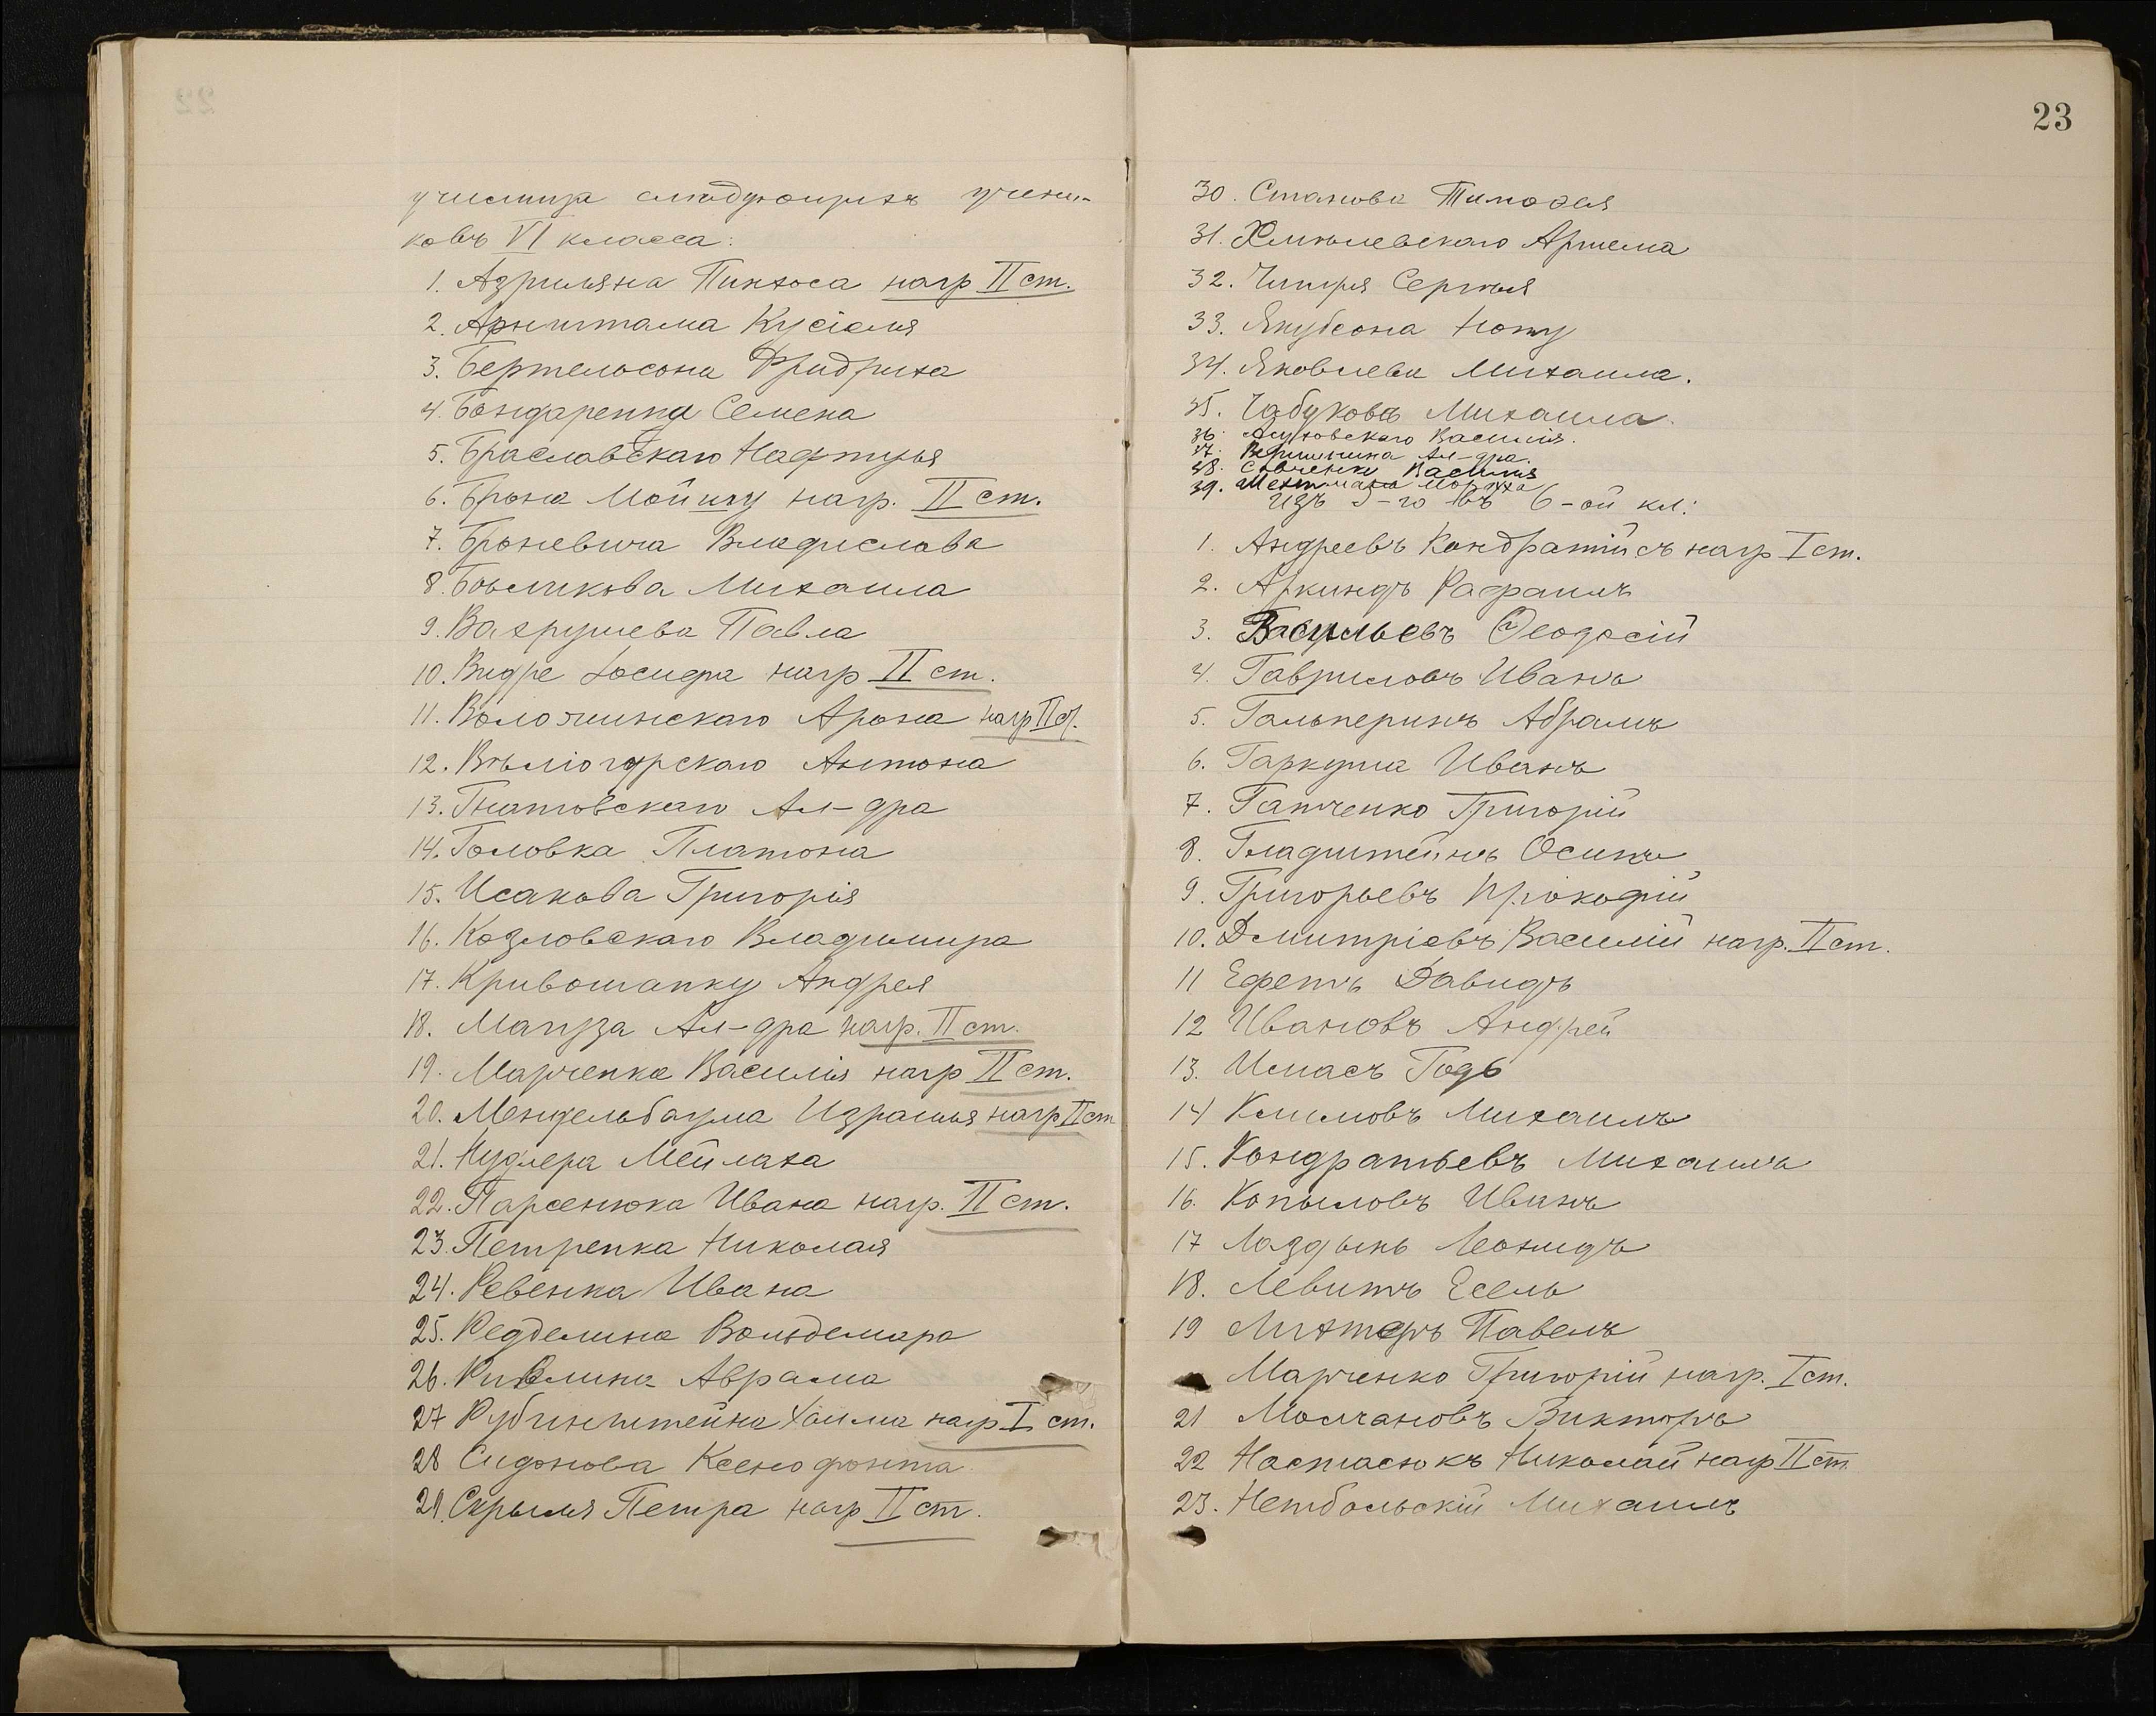 училища слѣдующихъ учени-
ковъ VI класса:
1. Азрильяна Пинхоса нагр II ст.
2. Арнштама Кусіеля
3. Бертельсона Фридриха
4. Бондаренка Семена
5. Браславскаго Нафтулья
6. Брона Мойшу нагр. II ст.
7. Броневича Владислава
8. Бѣликова Михаила
9. Вахрушева Павла
10. Видре Іосифа нагр II ст.
11. Воложинскаго Арона нагр II ст.
12. Вѣліогурскаго Антона
13. Гнатовскаго Ал-дра
14. Головка Платона
15. Исакова Григорія
16. Козловскаго Владимира
17. Кривошапку Андрея
18. Ал-дра нагр. II ст.
19. Марченка Василія нагр II ст.
20. Мендельбаума Израиля нагр II ст
21. Нудлера Мейлаха
22. Парсенюка Ивана нагр. II ст.
23. Петренка Николая
24. Ревенка Ивана
25. Редзелина Вольдемара
26. Ривлина Аврама
27 Рубинштейна Хаима нагр I ст.
28 Сидонова Ксенофонта
29. Скрыля Петра нагр II ст.
23
30. Станова Тимофея
31. Хмѣлевскаго Артема
32. Чигиря Сергѣя
33. Якубсона Ноту
34. Яковлева Михаила.
35. Чабукова Михаила.
36. Василія.
37. Вершинина Ал-дра.
38. Савченку Василія
39. Шехтмана Мордуха
Изъ 5-го въ 6-ой кл:
1. Андреевъ Кондратій съ нагр I ст.
2. Аркиндъ Рафаилъ
3. Васильевъ Ѳеодосій
4. Гавриловъ Иванъ
5. Гальперинъ Абрамъ
6. Гаркуша Иванъ
7. Гатченко Григорій
8. Гладштейнъ Осипъ
9. Григорьевъ Прокофій
10. Дмитріевъ Василій нагр. II ст.
11 Ефетъ Давидъ
12 Ивановъ Андрей
13. Имасъ Годь
14 Климовъ Михаилъ
15. Кондратьевъ Михаилъ
16. Копыловъ Иванъ
17 Лаздынь Леонидъ
18. Левитъ Есель
19 Лихтеръ Павелъ
Марченко Григорій нагр. I ст.
21 Молчановъ Викторъ
22 Настасюкъ Николай нагр II ст.
23. Нетбольскій Михаилъ